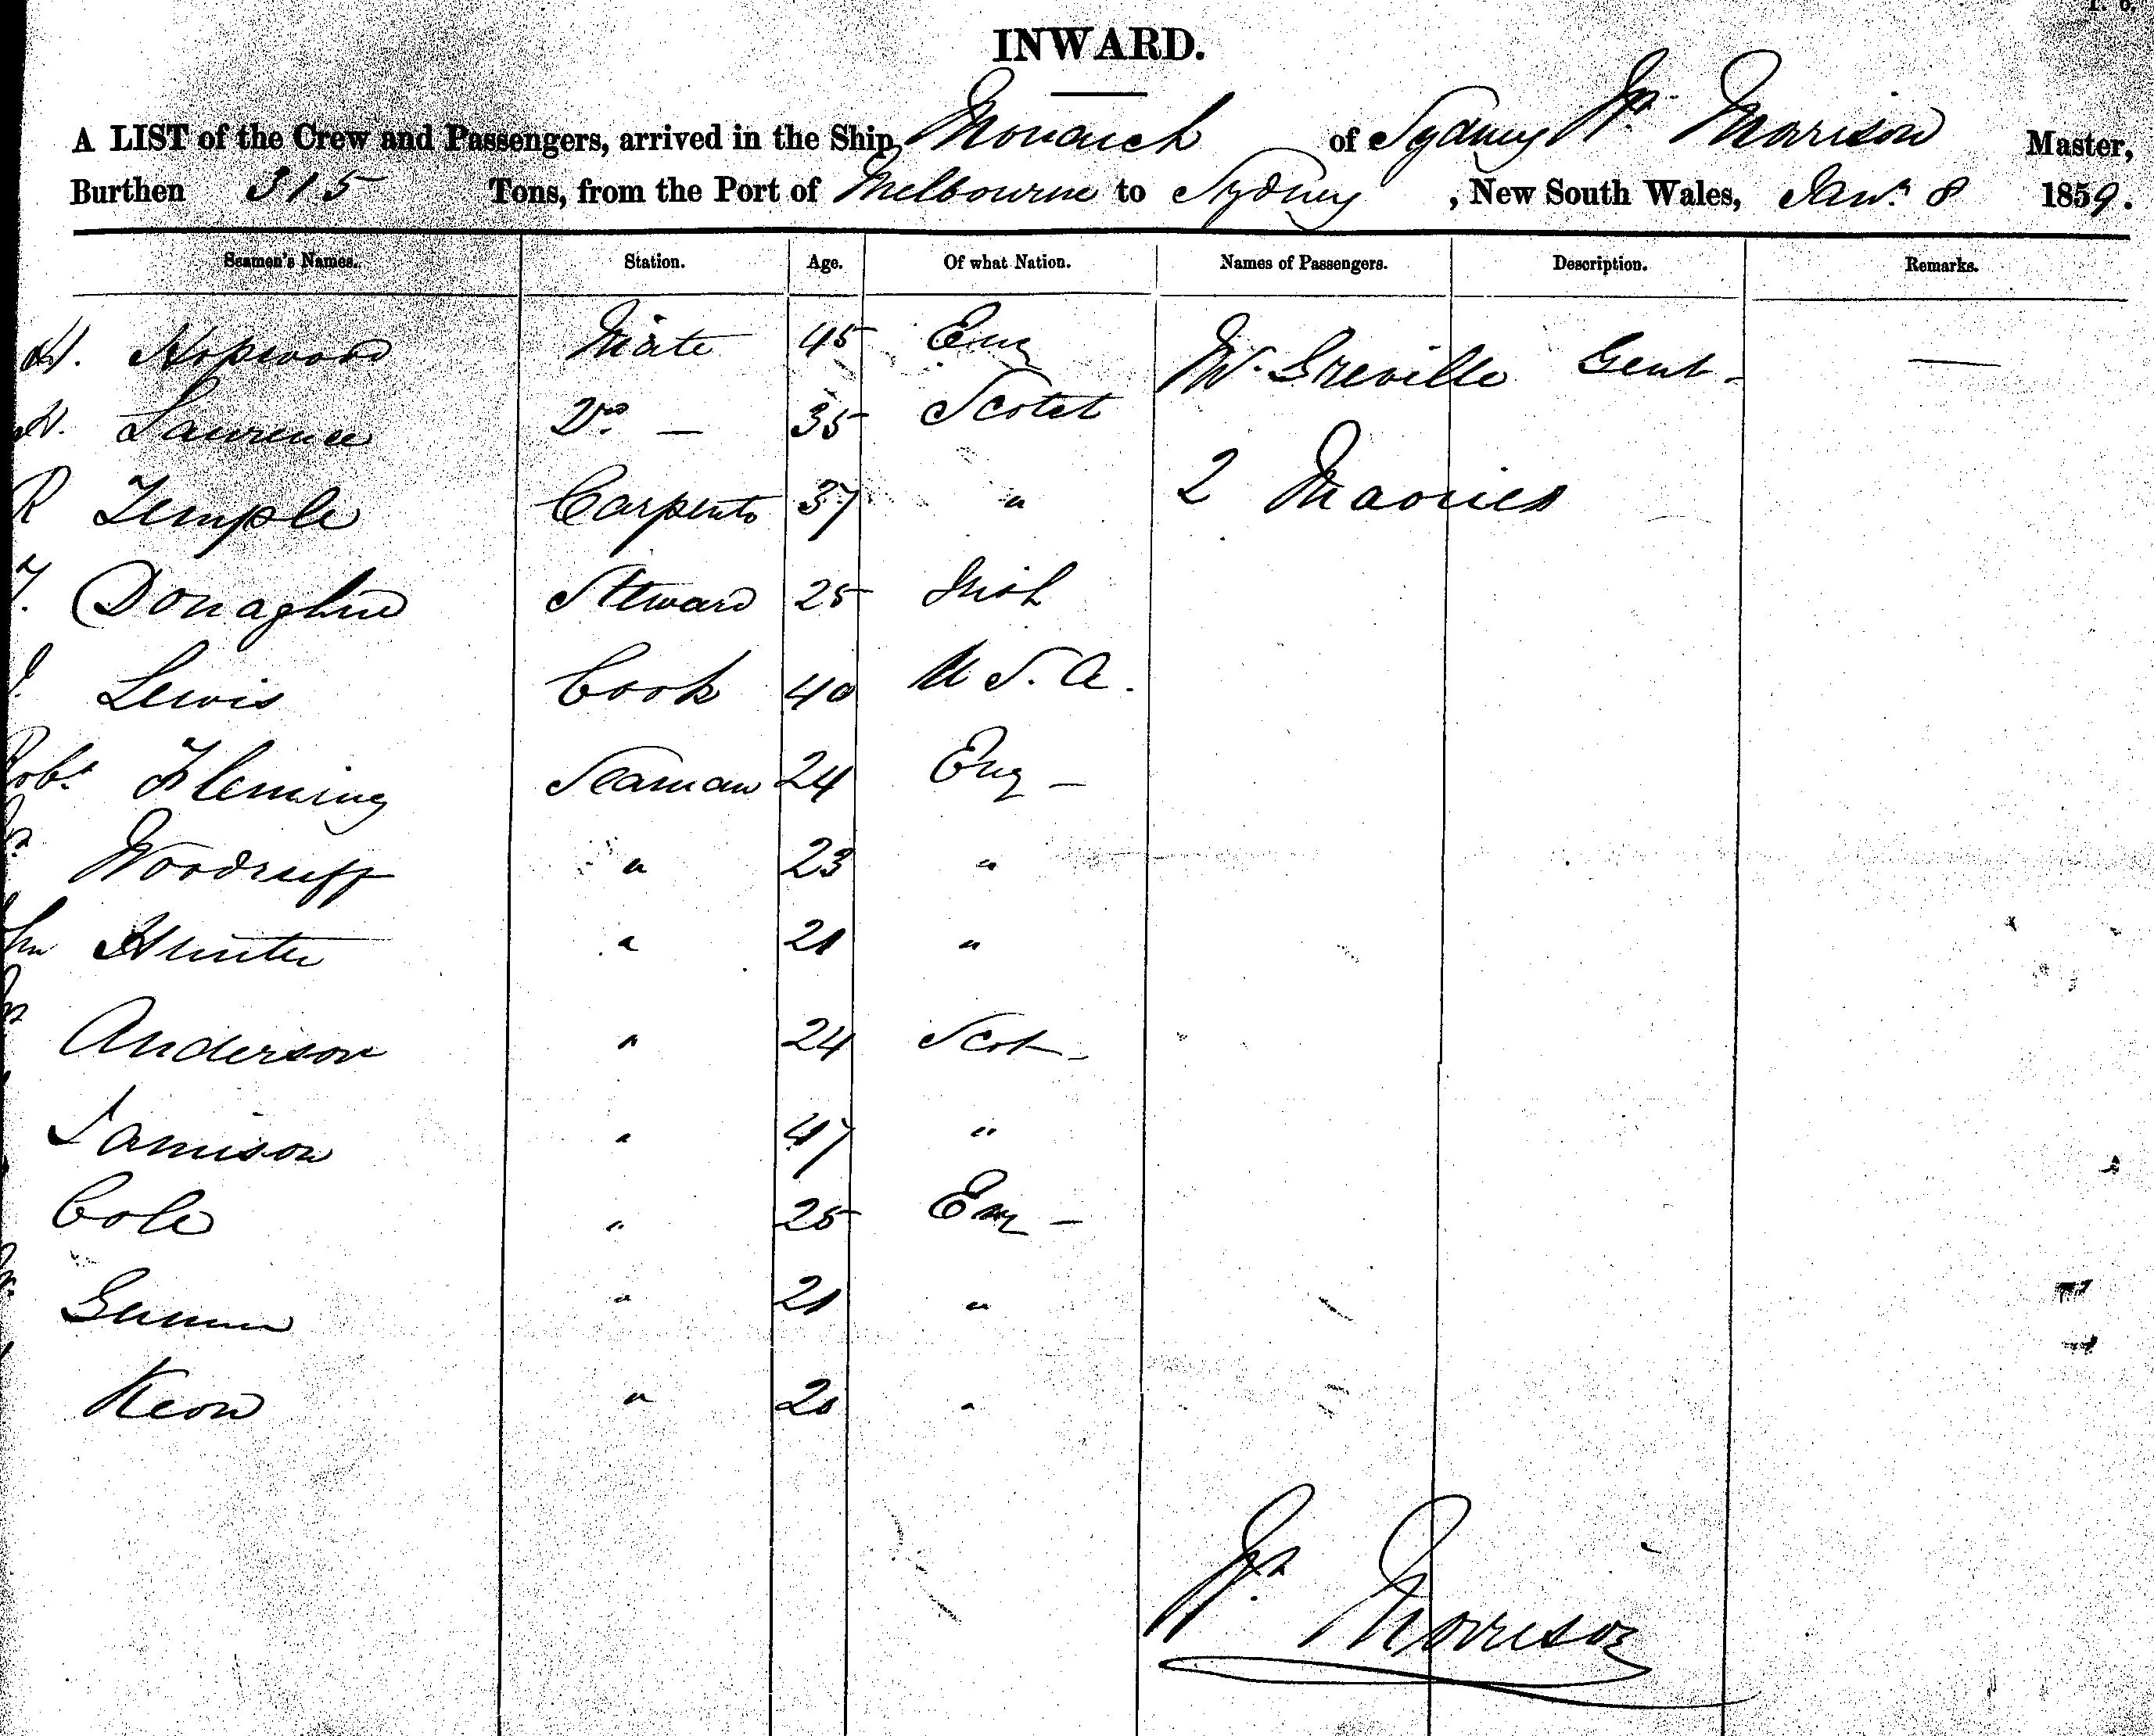 INWARD.
A LIST of the Crew and Passengers, arrived in the Ship Monarch of Sydney Morrison Master,
Burthen 315 Tons, from the Port of Melbourne to Sydney, New South Wales, Jany. 8 1859.
Seamen's Names. Station. Age. Of what Nation. Names of Passengers. Description. Remarks.
H. Hopwood Mate 45 Eng Greville Gent -
Lawrence Do. — 35 Scotch
R Temple Carpenter 37 " 2 Maories
T. Donaghue Steward 25 Irish
Lewis Cook 40 U S. A.
Robt. Fleming Seaman 24 Eng —
Woodruff " 23 "
Hunter " 21 "
Anderson " 24 Scot -
Jamison " 47 "
Cole " 25 Eng —
" 21 "
Keon " 20 "
Morrison